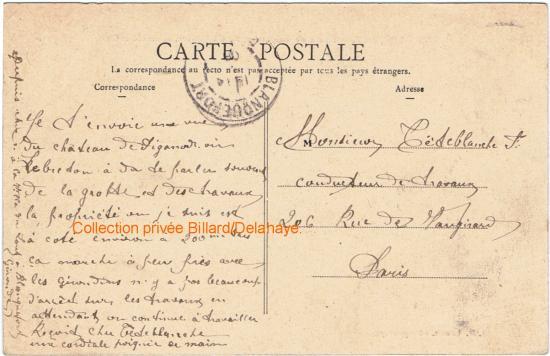 CARTE POSTALE
La correspondance au recto n'est pas acceptée par tous les pays étrangers.
Correspondance
Adresse
BLANQUEFORT
Je t'envoie une vue
du château de
Lebreton a da te parler souvent
de la grotte et des travaux
la propriété ou je suis est
à coté environ a 200 mètres
ca marche à peu près avec
les girondins n'y a pas beaucoup
d'arrêt sur les travaux en
attendant on continue à travailler
Reçoit cher Têteblanche
une cordiale poignée de main
Monsieur Têteblanche
conducteur de travaux
206 Rue de Vaugirard
Paris
Collection privée Billard/Delahaye.
Blanquefort
Gironde